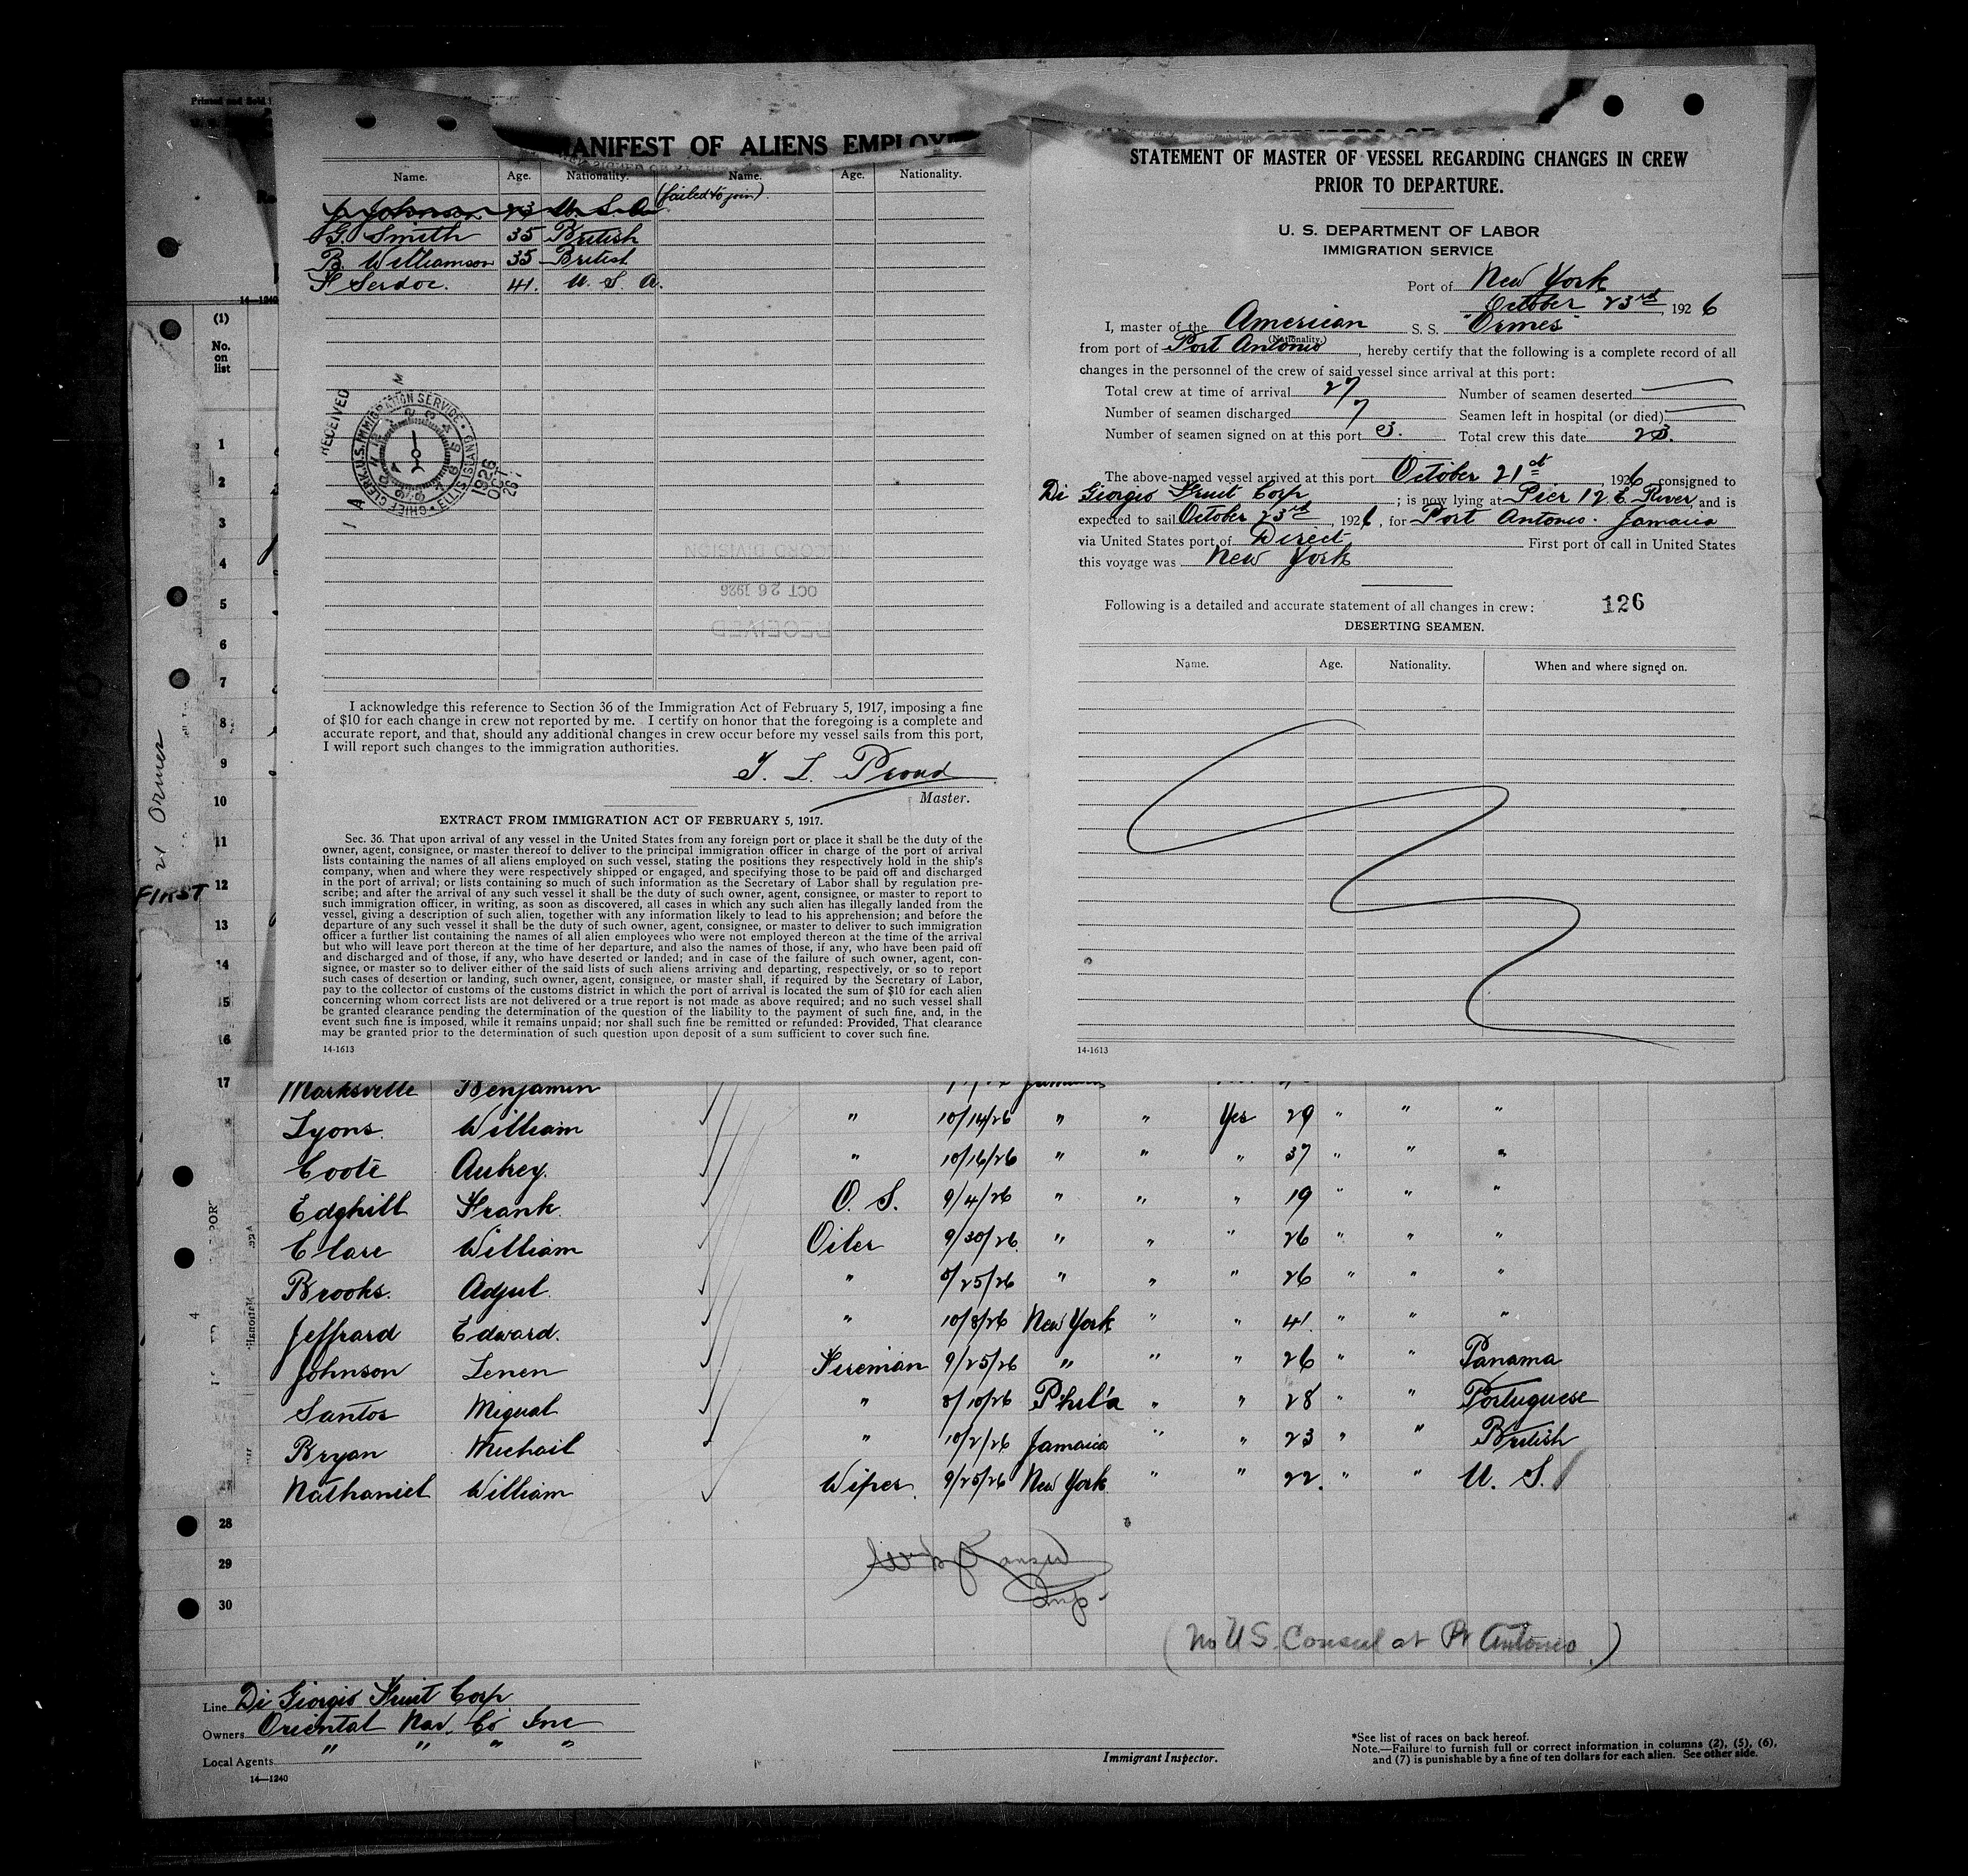 Printed and Sold
MANIFEST OF ALIENS EMPLOY
Name. Age. Nationality. Name. Age. Nationality.
J. Johnson 23 U. S. A. (failed to join).
G. Smith 35 British
B. Williamson 35 British
F Serdoc. 41. U. S. A.
RECEIVED
CHIEF CLERK, U.S. IMMIGRATION SERVICE • ELLIS ISLAND •
1926 OCT 26
RECORD DIVISION
OCT 26 1926
RECEIVED
I acknowledge this reference to Section 36 of the Immigration Act of February 5, 1917, imposing a fine
of $10 for each change in crew not reported by me. I certify on honor that the foregoing is a complete and
accurate report, and that, should any additional changes in crew occur before my vessel sails from this port,
I will report such changes to the immigration authorities.
T. L. Proud
Master.
EXTRACT FROM IMMIGRATION ACT OF FEBRUARY 5, 1917.
Sec. 36. That upon arrival of any vessel in the United States from any foreign port or place it shall be the duty of the
owner, agent, consignee, or master thereof to deliver to the principal immigration officer in charge of the port of arrival
lists containing the names of all aliens employed on such vessel, stating the positions they respectively hold in the ship's
company, when and where they were respectively shipped or engaged, and specifying those to be paid off and discharged
in the port of arrival; or lists containing so much of such information as the Secretary of Labor shall by regulation pre-
scribe; and after the arrival of any such vessel it shall be the duty of such owner, agent, consignee, or master to report to
such immigration officer, in writing, as soon as discovered, all cases in which any such alien has illegally landed from the
vessel, giving a description of such alien, together with any information likely to lead to his apprehension; and before the
departure of any such vessel it shall be the duty of such owner, agent, consignee, or master to deliver to such immigration
officer a further list containing the names of all alien employees who were not employed thereon at the time of the arrival
but who will leave port thereon at the time of her departure, and also the names of those, if any, who have been paid off
and discharged and of those, if any, who have deserted or landed; and in case of the failure of such owner, agent, con-
signee, or master so to deliver either of the said lists of such aliens arriving and departing, respectively, or so to report
such cases of desertion or landing, such owner, agent, consignee, or master shall, if required by the Secretary of Labor,
pay to the collector of customs of the customs district in which the port of arrival is located the sum of $10 for each alien
concerning whom correct lists are not delivered or a true report is not made as above required; and no such vessel shall
be granted clearance pending the determination of the question of the liability to the payment of such fine, and, in the
event such fine is imposed, while it remains unpaid; nor shall such fine be remitted or refunded: Provided, That clearance
may be granted prior to the determination of such question upon deposit of a sum sufficient to cover such fine.
14-1613
STATEMENT OF MASTER OF VESSEL REGARDING CHANGES IN CREW
PRIOR TO DEPARTURE.
U. S. DEPARTMENT OF LABOR
IMMIGRATION SERVICE
Port of New York
October 23rd, 1926
I, master of the American S. S. "Ormes"
(Nationality.)
from port of Port Antonio, hereby certify that the following is a complete record of all
changes in the personnel of the crew of said vessel since arrival at this port:
Total crew at time of arrival 27 Number of seamen deserted
Number of seamen discharged 7 Seamen left in hospital (or died)
Number of seamen signed on at this port 3. Total crew this date 23.
The above-named vessel arrived at this port October 21st, 1926, consigned to
Di Giorgio Fruit Corp; is now lying at Pier 12 E. River, and is
expected to sail October 23rd, 1926, for Port Antonio. Jamaica
via United States port of Direct First port of call in United States
this voyage was New York
Following is a detailed and accurate statement of all changes in crew: 126
DESERTING SEAMEN.
Name. Age. Nationality. When and where signed on.
14-1613
14—1240
(1)
No.
on
list
1
2
3
4
5
6
7
8
9
10
11
12
13
14
15
16
21 Ormes
FIRST
17 Marksvelle Benjamin Jamaica
Lyons. William " 10/14/26 " " Yes 29 " " "
Coote Aubrey. " 10/16/26 " " " 37 " " "
Edghill Frank O. S. 9/4/26 " " " 19 " " "
Clare William Oiler 9/30/26 " " " 26 " " "
Brooks. Adjul. " 8/25/26 " " " 26 " " "
Jeffrard Edward. " 10/8/26 New York " " 41. " " "
Johnson Lenen Fireman 9/25/26 " " " 26 " " Panama
Santos Migual " 8/10/26 Phil'a " " 28 " " Portuguese
Bryan Michail " 10/2/26 Jamaica " " 23 " " British
Nathaniel William Wiper. 9/25/26 New York " " 22. " " U. S.
28
29
30
Insp.
(No U S. Consul at Pt Antonio.)
Line Di Giorgio Fruit Corp
Owners Oriental Nav. Co Inc
Local Agents " " " "
14—1240
Immigrant Inspector.
*See list of races on back hereof.
Note.—Failure to furnish full or correct information in columns (2), (5), (6),
and (7) is punishable by a fine of ten dollars for each alien. See other side.